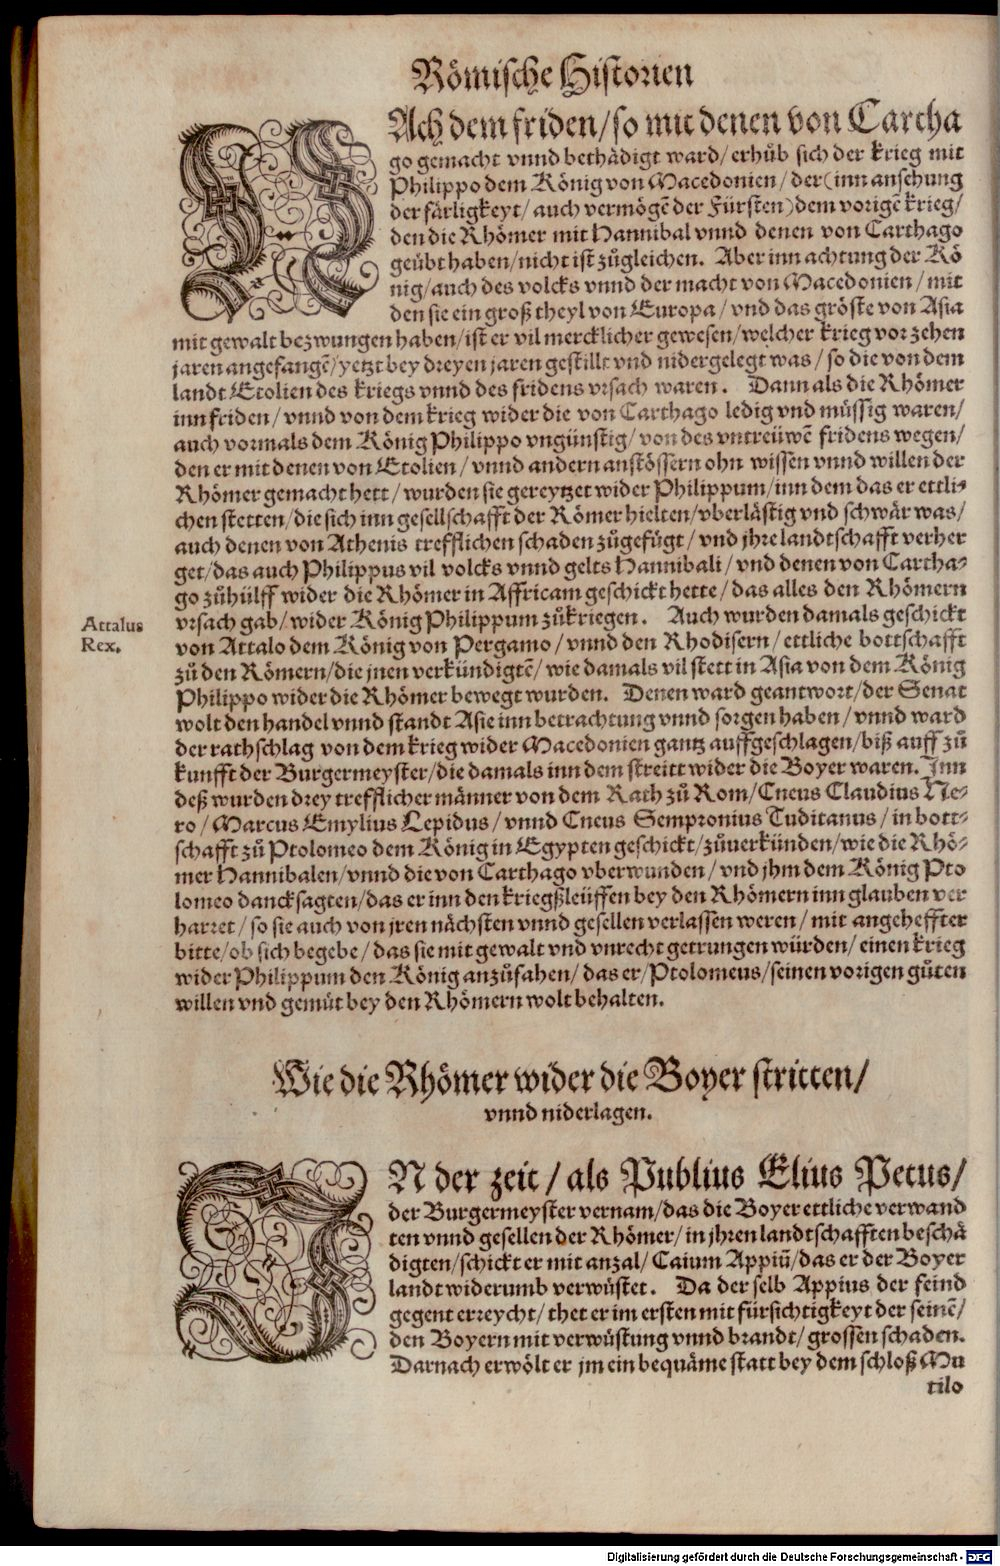 Römische Historien
NAch dem friden/so mit denen von Cartha
go gemacht vnnd bethädigt ward/erhůb sich der krieg mit
Philippo dem König von Macedonien/der(inn ansehung
der färligkeyt/auch vermögẽ der Fürsten)dem vorigẽ krieg/
den die Rhömer mit Hannibal vnnd denen von Carthago
geübt haben/nicht ist zůgleichen. Aber inn achtung der Kö
nig/auch des volcks vnnd der macht von Macedonien/mit
den sie ein groß theyl von Europa/vnd das gröste von Asia
mit gewalt bezwungen haben/ist er vil mercklicher gewesen/welcher krieg vor zehen
jaren angefangẽ/yetzt bey dreyen jaren gestillt vnd nidergelegt was/so die von dem
landt Etolien des kriegs vnnd des fridens vrsach waren. Dann als die Rhömer
inn friden/vnnd von dem krieg wider die von Carthago ledig vnd müssig waren/
auch vormals dem König Philippo vngünstig/von des vntreüwẽ fridens wegen/
den er mit denen von Etolien/vnnd andern anstössern ohn wissen vnnd willen der
Rhömer gemacht hett/wurden sie gereytzet wider Philippum/inn dem das er ettli-
chen stetten/die sich inn gesellschafft der Römer hielten/vberlästig vnd schwär was/
auch denen von Athenis trefflichen schaden zůgefügt/vnd jhre landtschafft verher
get/das auch Philippus vil volcks vnnd gelts Hannibali/vnd denen von Cartha-
go zůhülff wider die Rhömer in Affricam geschickt hette/das alles den Rhömern
vrsach gab/wider König Philippum zůkriegen. Auch wurden damals geschickt
von Attalo dem König von Pergamo/vnnd den Rhodisern/ettliche bottschafft
zů den Römern/die jnen verkündigtẽ/wie damals vil stett in Asia von dem König
Philippo wider die Rhömer bewegt wurden. Denen ward geantwort/der Senat
wolt den handel vnnd standt Asie inn betrachtung vnnd sorgen haben/vnnd ward
der rathschlag von dem krieg wider Macedonien gantz auffgeschlagen/biß auff zů
kunfft der Burgermeyster/die damals inn dem streitt wider die Boyer waren. Inn
deß wurden drey trefflicher männer von dem Rath zů Rom/Cneus Claudius Ne-
ro/Marcus Emylius Lepidus/vnnd Cneus Sempronius Tuditanus/in bott-
schafft zů Ptolomeo dem König in Egypten geschickt/zůuerkünden/wie die Rhö-
mer Hannibalen/vnnd die von Carthago vberwunden/vnd jhm dem König Pto
lomeo dancksagten/das er inn den kriegßleüffen bey den Rhömern inn glauben ver
harret/so sie auch von jren nächsten vnnd gesellen verlassen weren/mit angeheffter
bitte/ob sich begebe/das sie mit gewalt vnd vnrecht getrungen würden/einen krieg
wider Philippum den König anzůfahen/das er/Ptolomeus/seinen vorigen gůten
willen vnd gemüt bey den Rhömern wolt behalten.
Attalus
Rex.
Wie die Rhömer wider die Boyer stritten/
vnnd niderlagen.
IN der zeit/als Publius Elius Petus/
der Burgermeyster vernam/das die Boyer ettliche verwand
ten vnnd gesellen der Rhömer/in jhren landtschafften beschä
digten/schickt er mit anzal/Caium Appiũ/das er der Boyer
landt widerumb verwüstet. Da der selb Appius der feind
gegent erreycht/thet er im ersten mit fürsichtigkeyt der seinẽ/
den Boyern mit verwüstung vnnd brandt/grossen schaden.
Darnach erwölt er jm ein bequäme statt bey dem schloß Mu
tilo
Digitalisierung gefördert durch die Deutsche Forschungsgemeinschaft - DFG